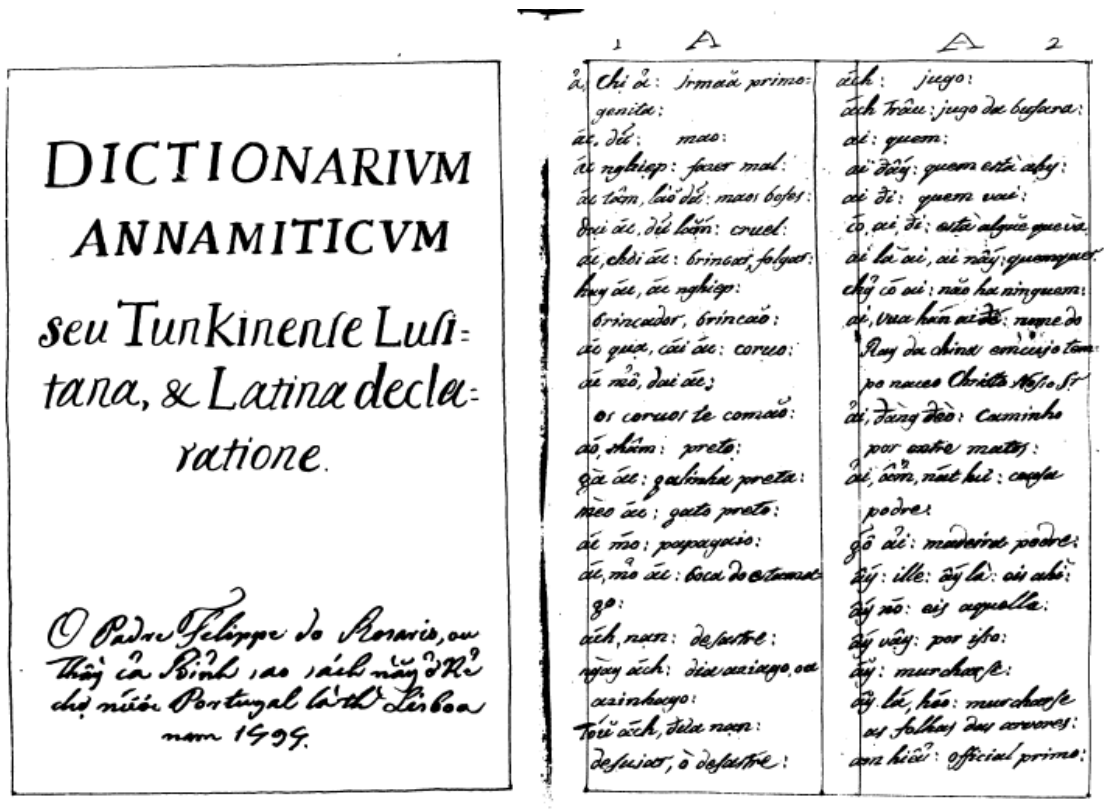 DICTIONARIVM
ANNAMITICVM
seu Tunkinenſe Luſi=
tana, & Latina decla=
ratione.
O Padre Felippe do Rosario, ou
Thầy cả Bỉnh, sao sách nầy ở Kẻ
chợ nước Portugal là th' Lisboa
nam
1 A
ả, chị ả: Irmaã primo=
genita:
ác, dữ: mao:
ác nghiep: fazer mal:
ác tâm, lào dữ: maos bofes:
dai ác, dữ lắm: cruel:
ác, chơi ác: brincar, folgar:
hay ác, ác nghiep:
brincador, brincaõ:
ác qua, cái ác: coruo:
ác mổ, dai ác;
os coruos te comaõ:
ác, thâm: preto:
gà ác: galinha preta:
mèo ác: gato preto:
ác mỏ: papagaio:
ác, mỏ ác: boca do estama=
go:
ách, nan: desastre:
ngày ách: dia aziago, ou
azinhago:
ách, đưa nan:
desuiar, o desastre:
A 2
ách: jugo:
ách trâu: jugo da bufara:
ai: quem:
ai đấy: quem està ahy:
ai đi: quem vai:
có, ai, đi: està alguẽ que và
ai là ai, ai nấy: quemquer.
chẳng có ai: não ha ninguem:
ai, vua hán ai đế: nome do
Rey da china em cujo tem=
po naceo Christo Nosso Sr
ải, đàng đèo: Caminho
por entre matos:
ải, ẩm, nát hu: cousa
podre:
gỗ ải: madeira podre:
ấy: ille: ấy là: eis ahi:
ấy nõ: eis aquella:
ấy vậy: por isso:
ãy: murcharse:
ãy lá, héo: murcharse
as folhas das arvores:
am hiểu: official primo: